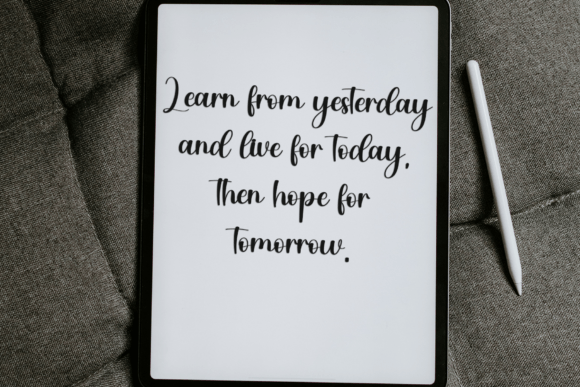 Learn from yesterday
and live for today.
Then hope for
tomorrow.